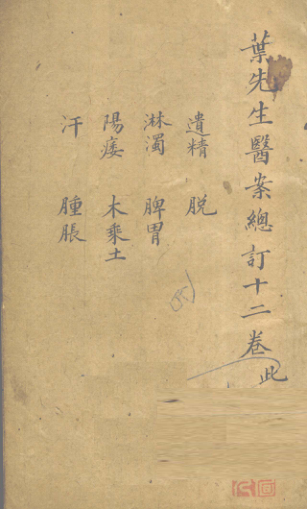 葉先生醫案總訂十二卷 此
遺精 脱
淋濁 脾胃
陽痿 木乘土
汗 腫脹